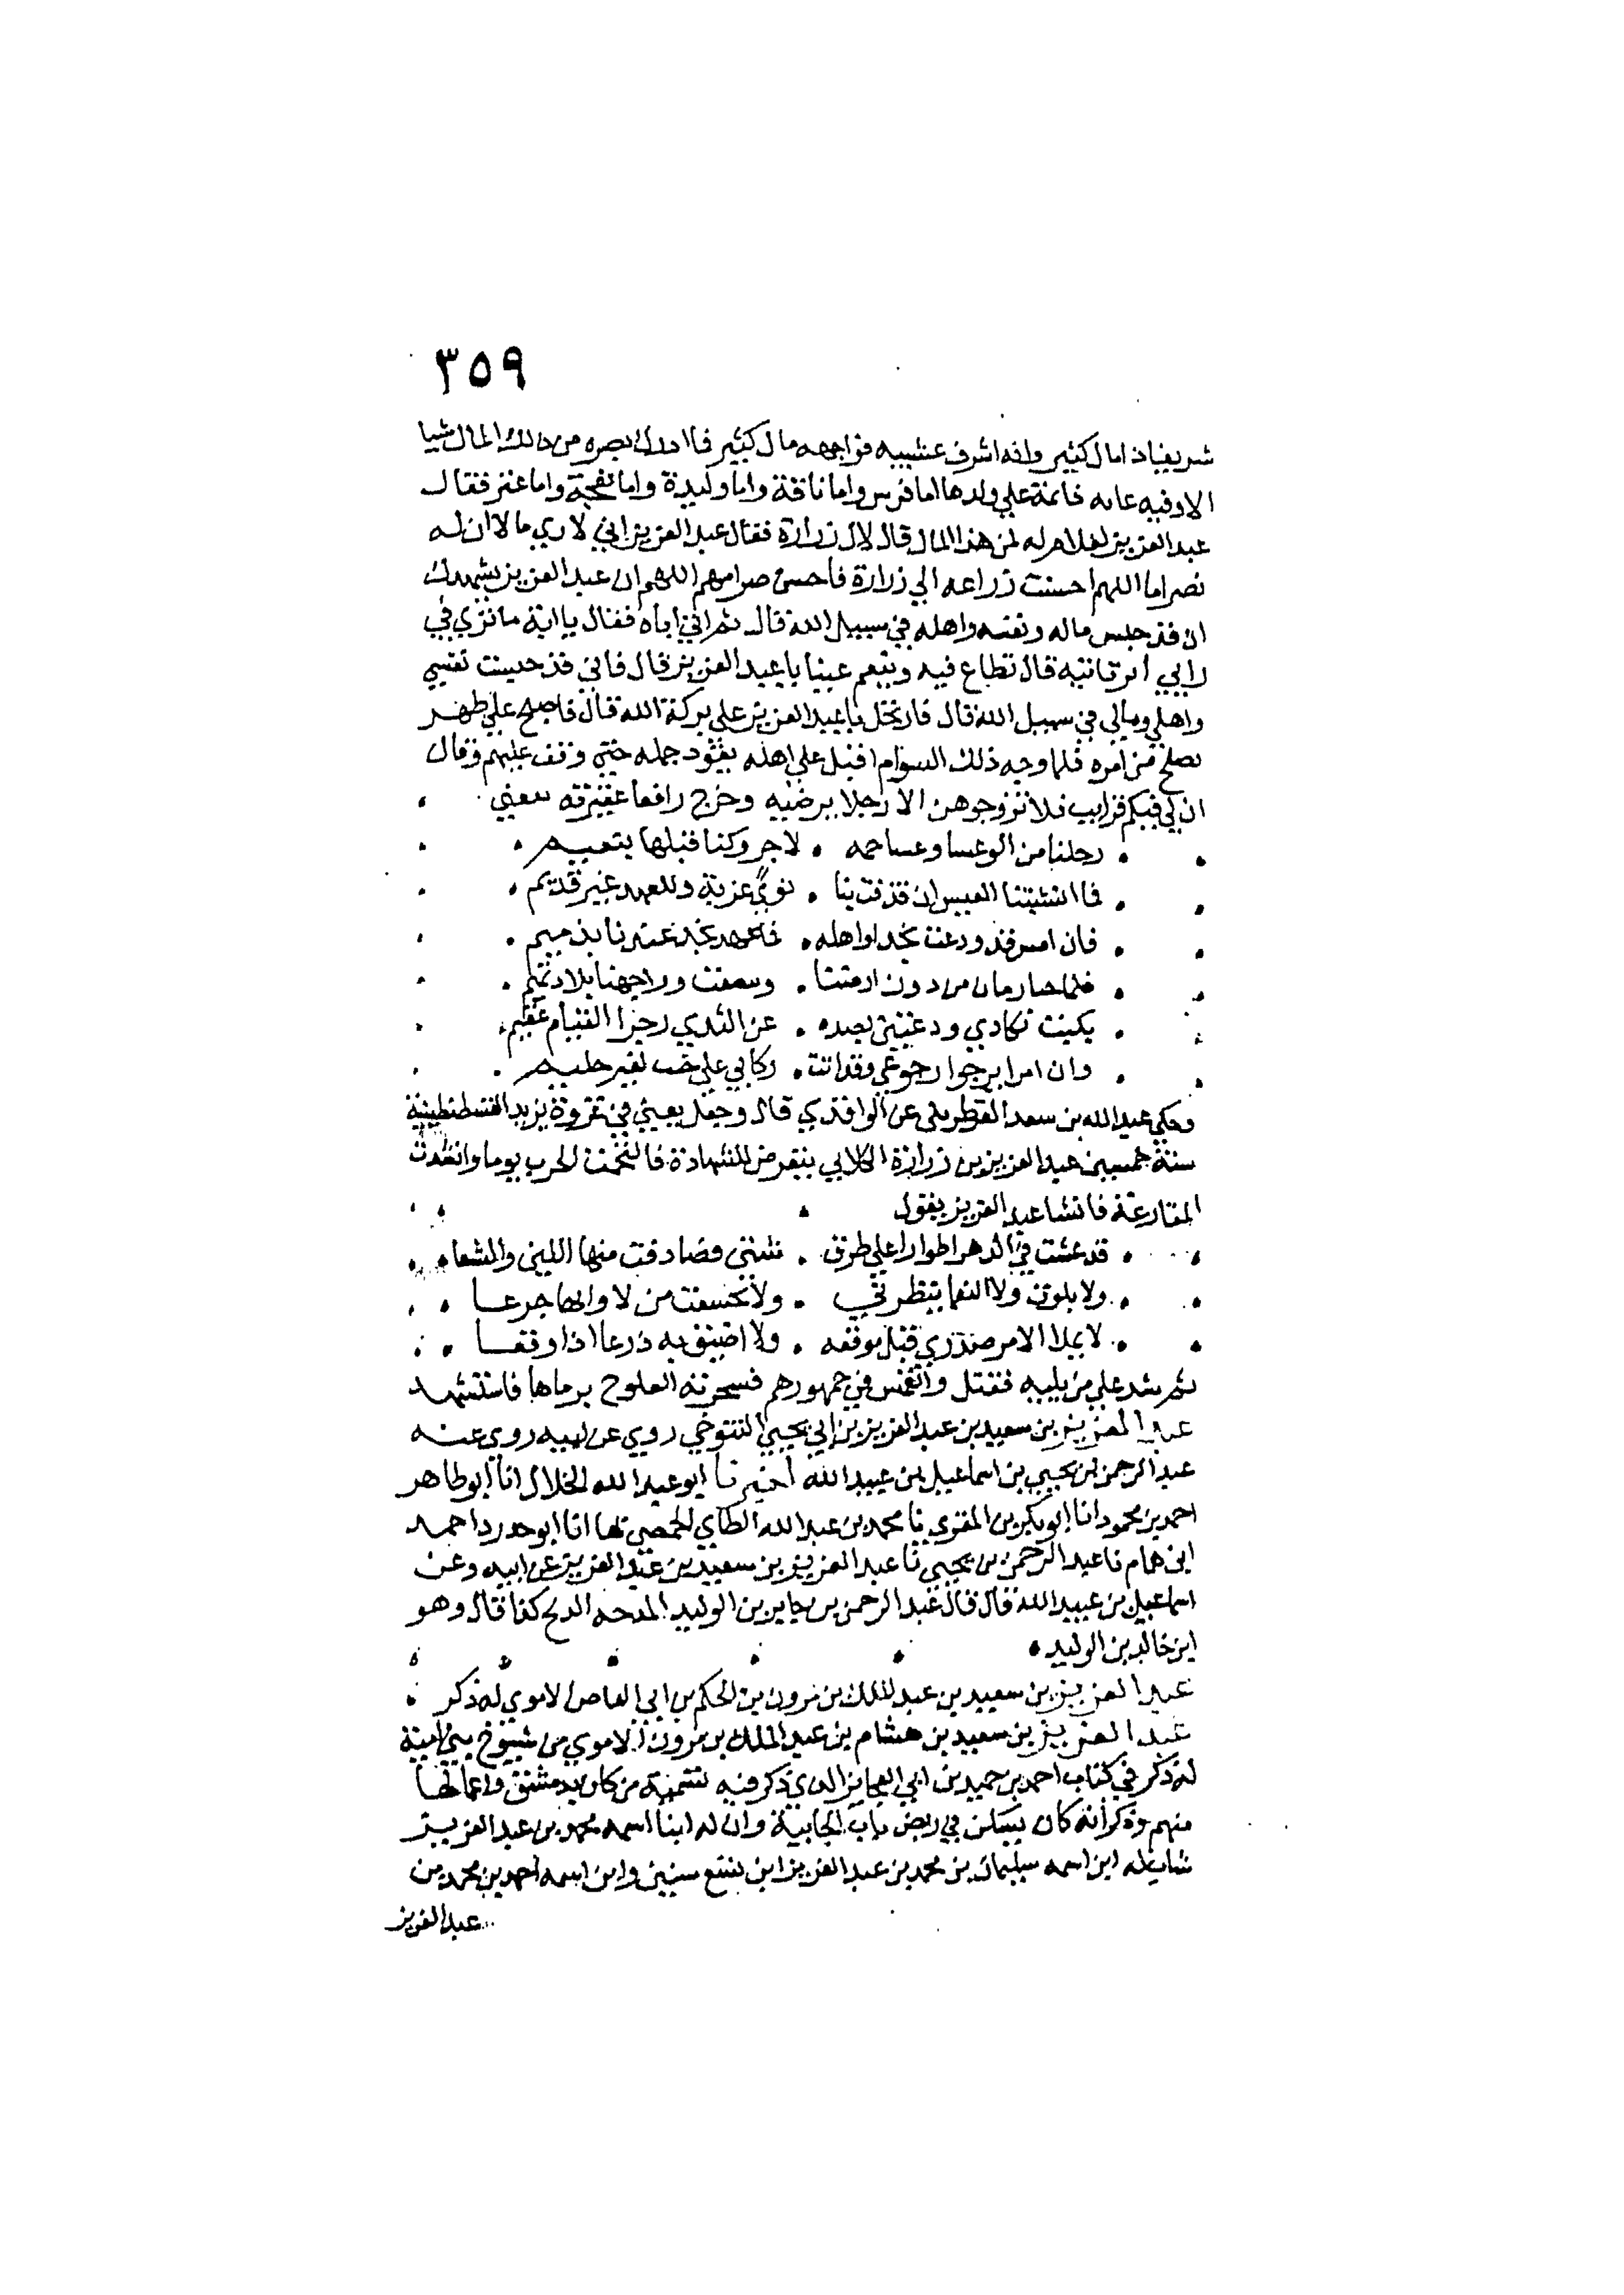 ٣٥٩
شريفا ذا مال كثير وانه اشرف عشيبه فواجهه مال كثير فما ادرك بصره من ذلك المال شيا
الا وفيه عانه قائمة علي ولدها اما فرس واما ناقة واما وليدة واما نعجة واما عنز فقال
عبد العزيز لغلام له لمن هذا المال قال لال زرارة فقال عبد العزيز اني لاري مالا ان له
نصراما اللهم احسنت زراعه الي زرارة فاحسن صرامهم اللهم ان عبد العزيز يشهدك
ان قد حبس ماله ونفسه واهله في سبيل الله قال ثم اتي اباه فقال يا ابة ما تري في
رايي ارتانيه قال تطاع فيه وينعم عينا يا عبد العزيز قال فاني قد حبست نفسي
واهلي ومالي في سبيل الله قال فارتحل يا عبد العزيز علي بركة الله قال فاصلح علي ظهر
يصلح من امره فلما وجه ذلك السوام اقبل علي اهله يقود جمله حتي وقف عليهم وقال
ان لي فيكم قرايب فلا تزوجوهن الا رجلا يرضيه وخرج رافعا عقيرته يغني
رحلنا من الوعسا وعساحمه لاجر وكنا قبلها بنعيم
فما انشيتنا العيس ان قذفت بنا نوي غربة وللعهد غير قديم
فان امس قد ودعت نجدا واهله فما عهد نجد عندنا بذميم
فلما صار مان من دون ارضنا وسعفت وواجهنا بلاد تميم
بكيت
وان امرا يرجوا رجوعي وقد اتت ركابي علي لغير حليم
وحكي عبد الله بن سعد القطربلي عن الواقدي قال وجعل يعني في غزوة يزيد القسطنطينية
سنة خمسين عبد العزيز بن زرارة الكلابي يتعرض للشهادة فالتحمت الحرب يوما واشتدت
المقارعة فانشا عبد العزيز يقول
قد عشت في الدهر اطوارا علي طرق شتي فصادفت منها اللين والبشعا
ولا بلوت ولا النعما تبطرني ولا تخشعت من لاوائها جرعا
لا يملا الامر صدري قبل موقعه ولا اضيق به ذرعا اذا وقعا
ثم شد علي من يليه فقتل وانغمس في جمهورهم فشجرته العلوج برماحها فاستشهد
عبد العزيز بن سعيد بن عبد العزيز بن ابي يحيي التنوخي روي عن ابيه روي عنه
عبد الرحمن بن يحيي بن اسماعيل بن عبيد الله اخبرنا ابو عبد الله الخلال انا ابو طاهر
احمد بن محمود انا ابو بكر بن المقري نا محمد بن عبد الله الطاي الحمصي بها انا ابو حدرد احمد
ابن همام نا عبد الرحمن بن يحيي نا عبد العزيز بن سعيد بن عبد العزيز عن ابيه وعن
اسماعيل بن عبيد الله قال قال عبد الرحمن بن جابر بن الوليد المدحه الذبح كذا قال وهو
ابن خالد بن الوليد
عبد العزيز بن سعيد بن عبد الملك بن مرون بن الحكم بن ابي العاص الاموي له ذكر
عبد العزيز بن سعيد بن هشام بن عبد الملك بن مرون الاموي من شيوخ بني امية
له ذكر في كتاب احمد بن حميد بن ابي العجايز الذي ذكر فيه تسمية من كان بدمشق واعمالها
منهم وذكر انه كان يسكن في ربض باب الجابية وان له ابنا اسمه محمد بن عبد العزيز
شاب له ابن اسمه سليمان بن محمد بن عبد العزيز ابن تسع سنين وابن اسمه احمد بن محمد بن
عبد العزيز